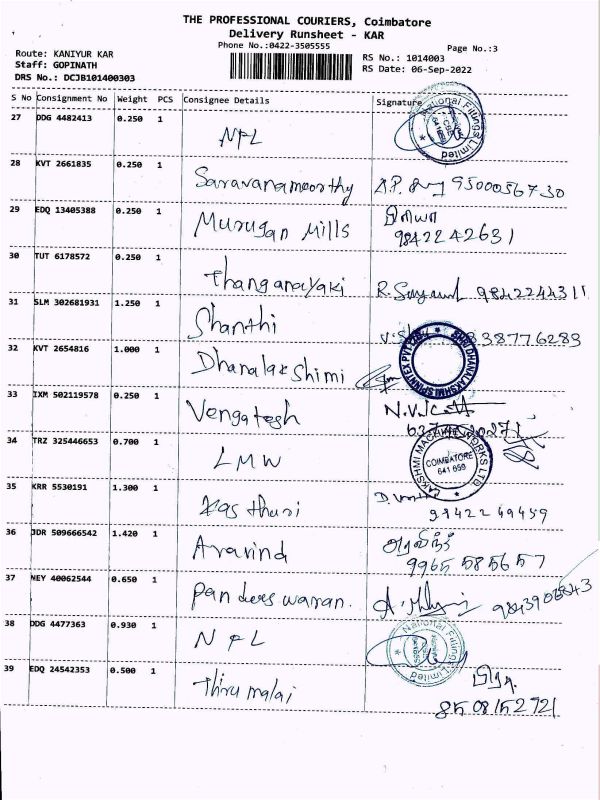 THE PROFESSIONAL COURIERS, Coimbatore
Delivery Runsheet - KAR
Phone No.:0422-3505555
Page No.:3
Route: KANIYUR KAR
RS No.: 1014003
Staff: GOPINATH
RS Date: 06-Sep-2022
DRS No.: DCJB101400303
S No Consignment No Weight PCS Consignee Details Signature
27 DDG 4482413 0.250 1 NFL
National Fittings Limited
28 KVT 2661835 0.250 1 Saravanamoorthy 9500056730
29 EDQ 13405388 0.250 1 Murugan Mills
9842242631
30 TUT 6178572 0.250 1 Thanganayaki 9842244311
31 SLM 302681931 1.250 1 Shanthi 9338776283
32 KVT 2654816 1.000 1 Dhanalakshimi
SHRI DHANALAKSHMI SPINNTEX PVT LTD
33 IXM 502119578 0.250 1 Vengatesh
34 TRZ 325446653 0.700 1 LMW
LAKSHMI MACHINE WORKS LTD.
COIMBATORE
641 659
35 KRR 5530191 1.300 1 Kasthuri
9942249459
36 JDR 509666542 1.420 1 Aravind அரவிந்த்
9965585657
37 NEY 40062544 0.650 1 Pandeeswaran.
38 DDG 4477363 0.930 1 NFL
National Fittings Limited
39 EDQ 24542353 0.500 1 Thirumalai
8508152721